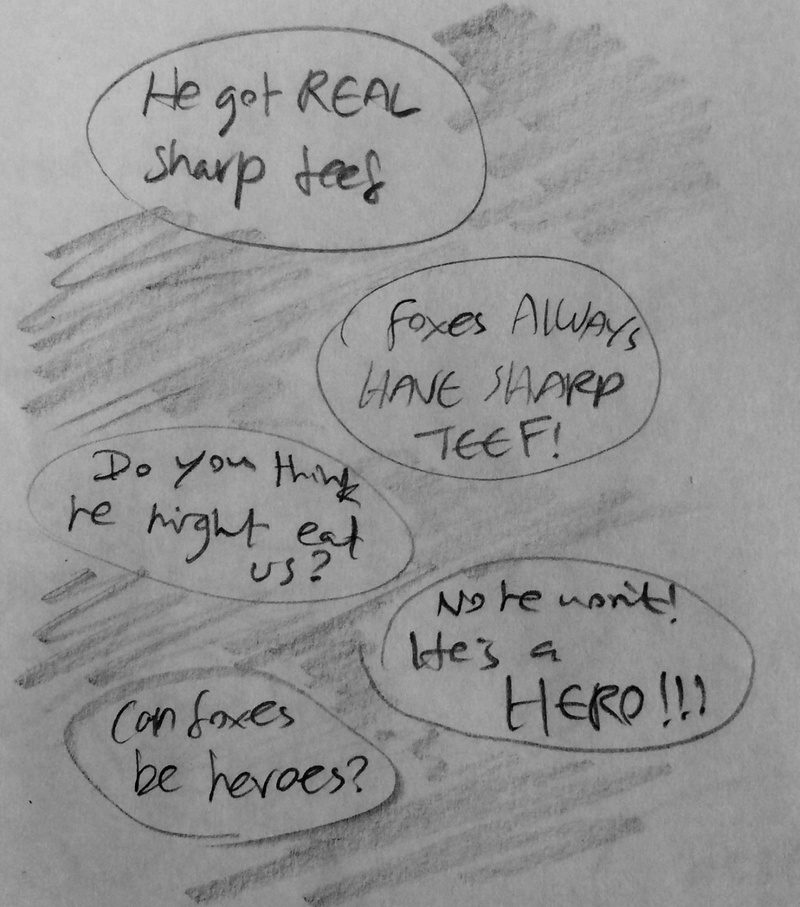 He got REAL
sharp teef
foxes AlWAYS
HAVE SHARP
TEEF!
Do you think
he might eat
us?
No he won't!
He's a
HERO!!!
Can foxes
be heroes?